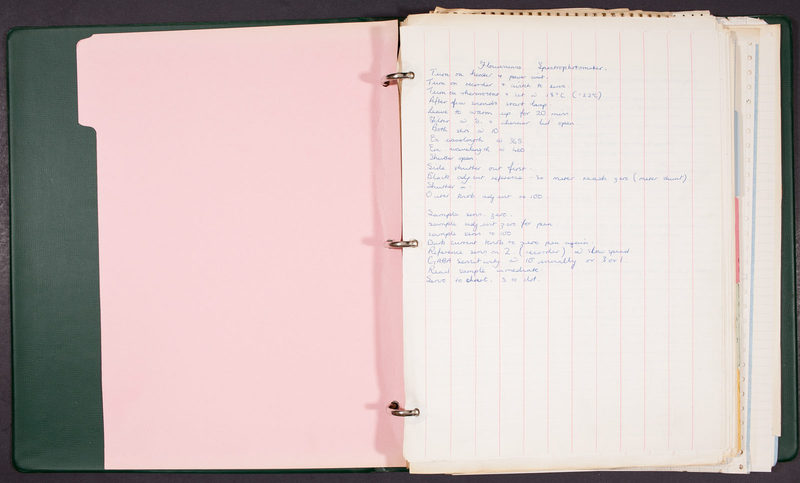 Flourescence Spectrophotometer.
Turn on heater + power unit.
Turn on recorder + switch to zero
Turn on thermostat + set to 18°C (-22°C)
After few seconds start lamp
Leave to warm up for 20 min
Filter in + chamber lid open
Both slits to 10
Ex wavelength to 365
Em wavelength to 460
Shutter open
Side shutter out first.
Black adjust reference - so meter reads zero (meter
Shutter in
Outer knob adjust to 100.
Sample sens. zero.
sample adjust zero for pen
sample sens to 100
Dark current knob to zero pen again
Reference sens on 2 (recorder) slow speed
GABA sensitivity 10 usually or 3 or 1.
Read sample immediate
Servo to chart. to slot.